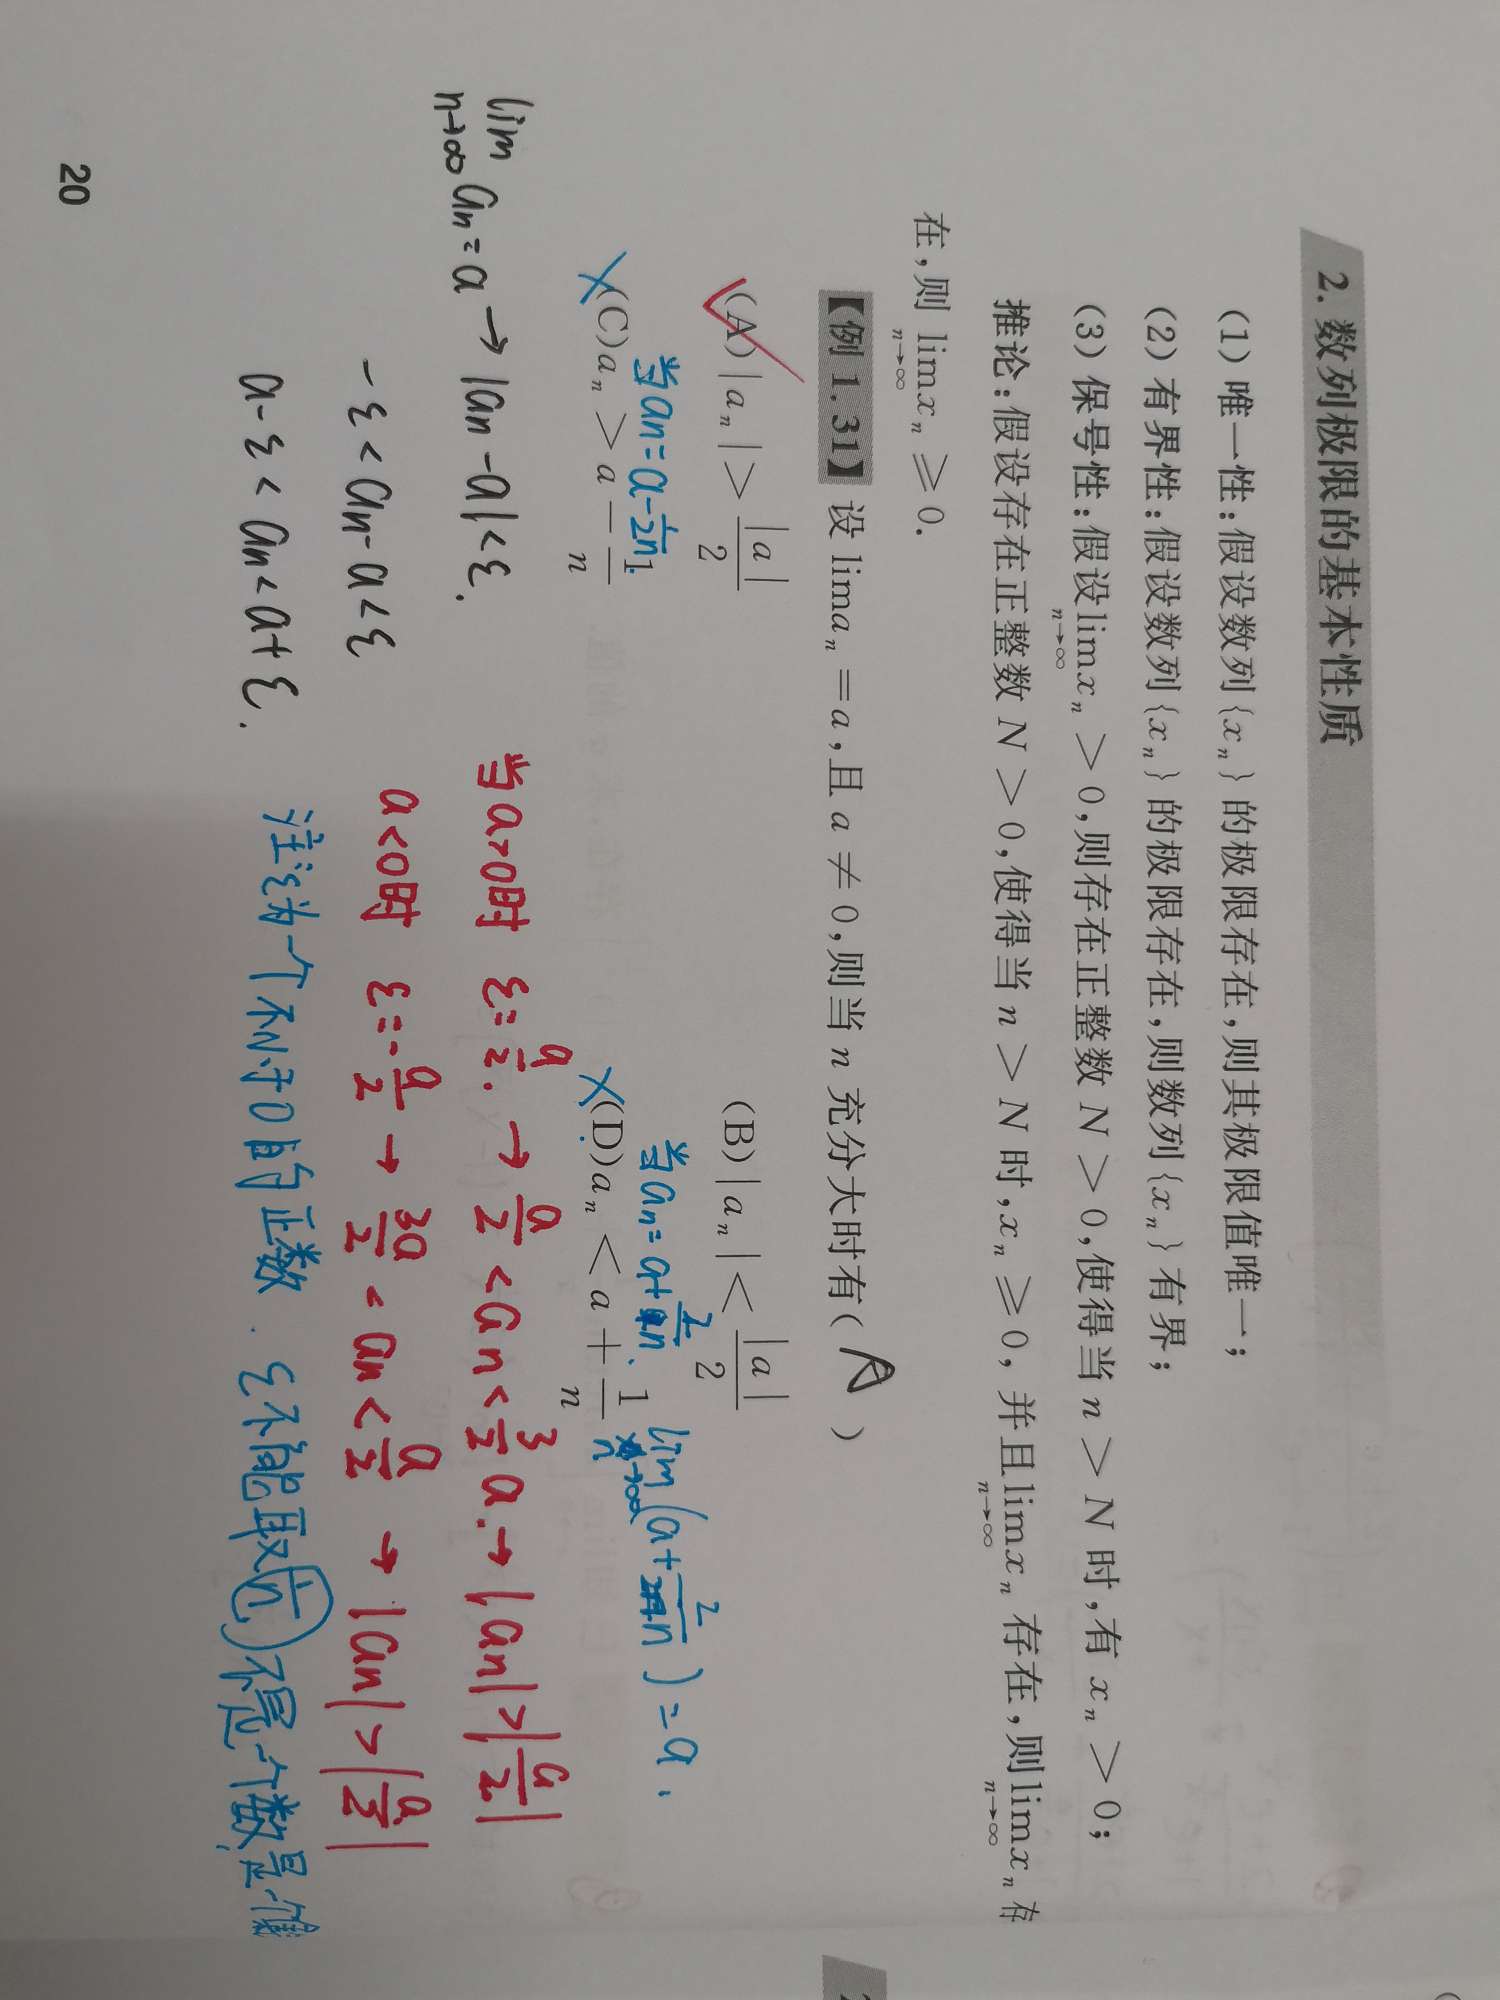 2. 数列极限的基本性质
(1) 唯一性:假设数列{xₙ}的极限存在,则其极限值唯一;
(2) 有界性:假设数列{xₙ}的极限存在,则数列{xₙ}有界;
(3) 保号性:假设lim xₙ > 0,则存在正整数 N > 0,使得当 n > N 时,有 xₙ > 0;
n→∞
推论:假设存在正整数 N > 0,使得当 n > N 时,xₙ ⩾ 0,并且lim xₙ 存在,则lim xₙ 存
n→∞ n→∞
在,则 lim xₙ ⩾ 0.
n→∞
【例 1.31】 设 lim aₙ = a,且 a ≠ 0,则当 n 充分大时有( A )
(A) |aₙ| > |a|/2 (B) |aₙ| < |a|/2
当an=a-1/2n. 当an=a+2/n. lim(a+2/n)=a.
n→∞
(C) aₙ > a - 1/n (D) aₙ < a + 1/n
lim an=a → |an-a|<ε.
n→∞
-ε<an-a<ε
a-ε<an<a+ε.
当a>0时 ε=a/2. → a/2<an<3/2a. → |an|>|a/2|
a<0时 ε=-a/2 → 3a/2<an<a/2 → |an|>|a/2|
注:ε为一个不小于0的正数. ε不能取1/n 不是个数,是个
20